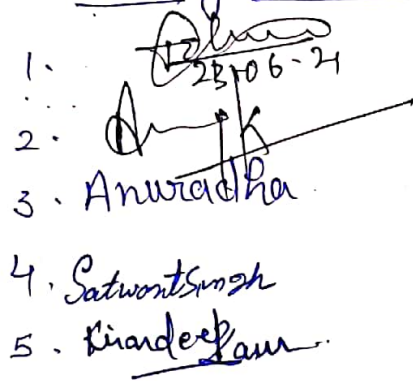 1.
23-06-21
2.
3. Anuradha
4. Satwant Singh
5. Kirandeep Kaur